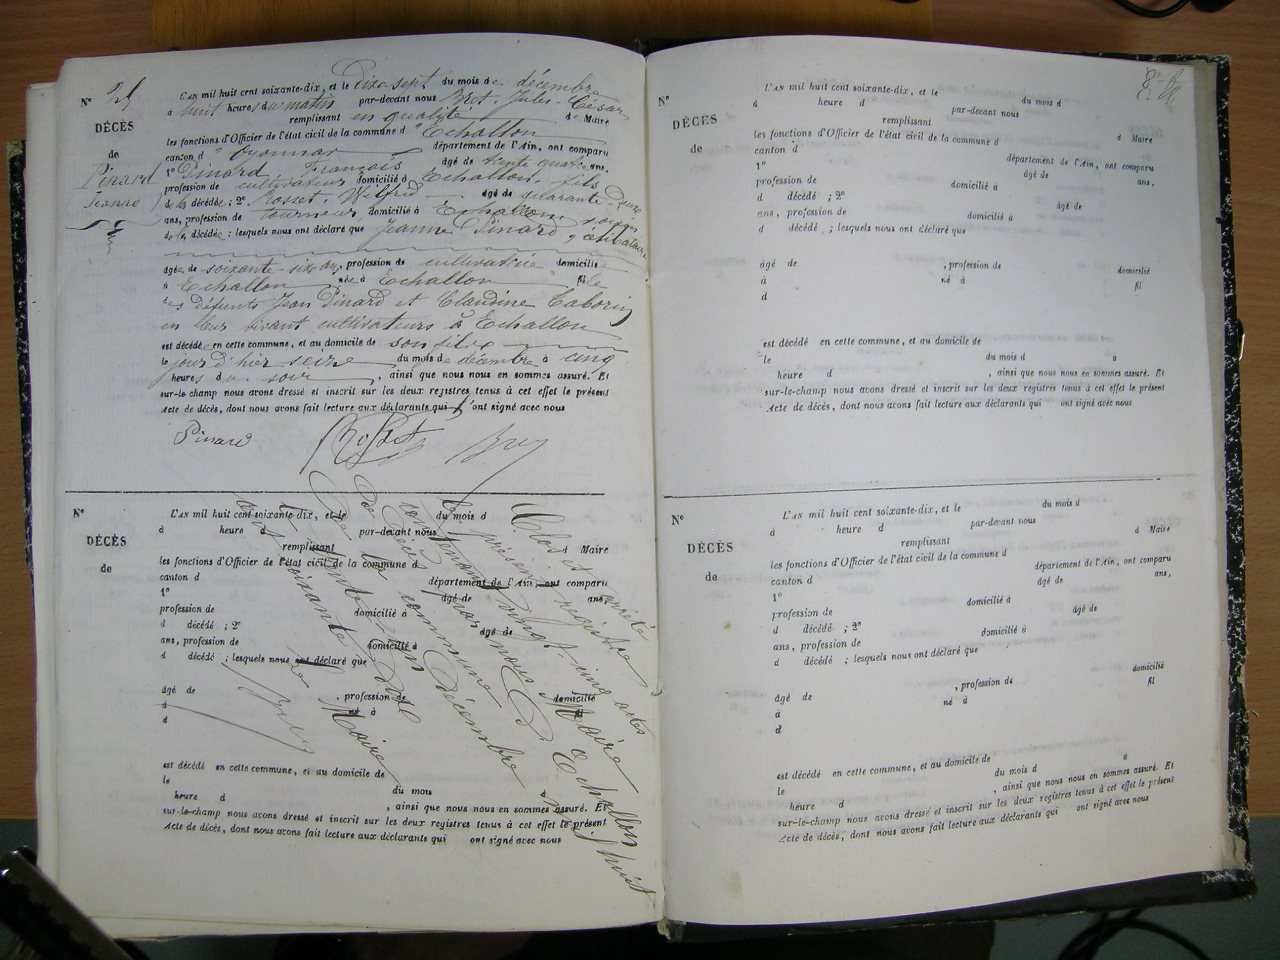 N° 25
DÉCÈS
de
Pinard
Jeanne
L'AN mil huit cent soixante-dix, et le Dix-sept du mois de décembre
à huit heures du matin par-devant nous Bret, Jules-César
remplissant en qualité de Maire
les fonctions d'Officier de l'état civil de la commune d'Echallon
canton d'oyonnax département de l'Ain, ont comparu
1° Pinard François âgé de trente quatre ans,
profession de cultivateur domicilié à Echallon, fils
de la décédée ; 2° Rosset, Wilfrid âgé de quarante deux
ans, profession de tourneur domicilié à Echallon
de la décédée ; lesquels nous ont déclaré que Jeanne Pinard, célibataire
âgée de soixante-six ans, profession de cultivatrice domicilié
à Echallon née à Echallon fille
des défunts Jean Pinard et Claudine Taborin
en leur vivant cultivateurs à Echallon
est décédée en cette commune, et au domicile de son fils
le jour d'hier seize du mois de décembre à cinq
heures du soir, ainsi que nous nous en sommes assuré. Et
sur-le-champ nous avons dressé et inscrit sur les deux registres tenus à cet effet le présent
Acte de décès, dont nous avons fait lecture aux déclarants qui ont signé avec nous
Pinard Rosset Brey
N°
DÉCÈS
de
L'AN mil huit cent soixante-dix, et le du mois d
à heure d par-devant nous
remplissant d Maire
les fonctions d'Officier de l'état civil de la commune d
canton d département de l'Ain, ont comparu
1° âgé de ans,
profession de domicilié à
d décédé ; 2° âgé de
ans, profession de domicilié à
d décédé ; lesquels nous ont déclaré que
âgé de , profession de domicilié
à né à fil
d
est décédé en cette commune, et au domicile de
le du mois
heure d , ainsi que nous nous en sommes assuré. Et
sur-le-champ nous avons dressé et inscrit sur les deux registres tenus à cet effet le présent
Acte de décès, dont nous avons fait lecture aux déclarants qui ont signé avec nous
Clos et arrêté
le présent registre
contenant vingt-cinq actes
de Décès par nous Maire
de la commune d'Echallon
le trente un Décembre mil huit
cent soixante Dix
Le Maire
Brey
N°
DÉCÈS
de
L'AN mil huit cent soixante-dix, et le du mois d
à heure d par-devant nous
remplissant d Maire
les fonctions d'Officier de l'état civil de la commune d
canton d département de l'Ain, ont comparu
1° âgé de ans,
profession de domicilié à
d décédé ; 2° âgé de
ans, profession de domicilié à
d décédé ; lesquels nous ont déclaré que
âgé de , profession de domicilié
à né à fil
d
est décédé en cette commune, et au domicile de
le du mois d a
heure d , ainsi que nous nous en sommes assuré. Et
sur-le-champ nous avons dressé et inscrit sur les deux registres tenus à cet effet le présent
Acte de décès, dont nous avons fait lecture aux déclarants qui ont signé avec nous
N°
DÉCÈS
de
L'AN mil huit cent soixante-dix, et le du mois d
à heure d par-devant nous
remplissant d Maire
les fonctions d'Officier de l'état civil de la commune d
canton d département de l'Ain, ont comparu
1° âgé de ans,
profession de domicilié à
d décédé ; 2° âgé de
ans, profession de domicilié à
d décédé ; lesquels nous ont déclaré que
âgé de , profession de domicilié
à né à fil
d
est décédé en cette commune, et au domicile de
le du mois d a
heure d , ainsi que nous nous en sommes assuré. Et
sur-le-champ nous avons dressé et inscrit sur les deux registres tenus à cet effet le présent
Acte de décès, dont nous avons fait lecture aux déclarants qui ont signé avec nous